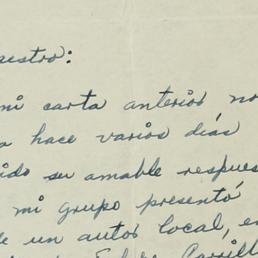 estro:
mi carta anterior no
a hace varios días
ido su amable respues
mi grupo presentó
de un autor local, e